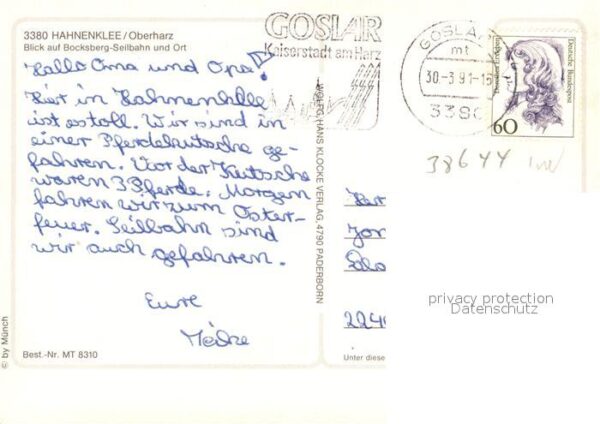 3380 HAHNENKLEE/Oberharz
Blick auf Bocksberg-Seilbahn und Ort
Hallo Oma und Opa!
Hier in Hahnenklle
ist es toll. Wir sind in
einer Pferdekutsche ge-
fahren. Vor der Kutsche
waren 3 Pferde. Morgen
fahren wir zum Oster-
feuer. Seilbahn sind
wir auch gefahren.
Eure
© by Münch
Best.-Nr. MT 8310
HANS KLOCKE VERLAG, 4790 PADERBORN
GOSLAR
Kaiserstadt am Harz
GOSLAR
mt
30.-3.91-15
3380
Deutsche Bundespost
60
38644
Unter diese
privacy protection
Datenschutz